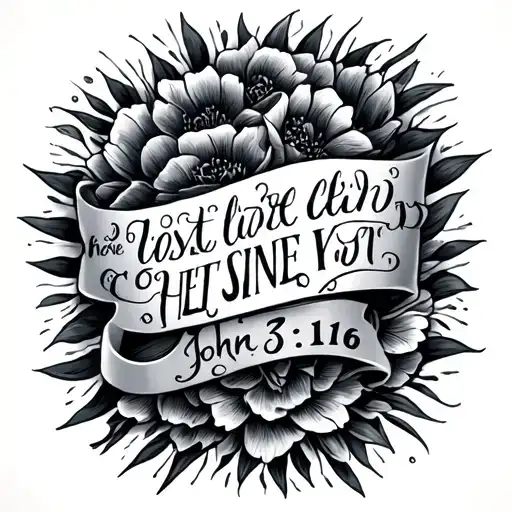 have lost liore cliv
HET SINE YUT
John 3:116